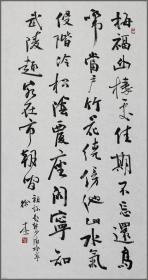 梅福幽棲处佳期不忘還鳥
啼當戶竹花繞傍池山水氣
侵階冷松陰覆座閑寧知
武陵趣宛在市朝間 祖詠題韓少府水亭